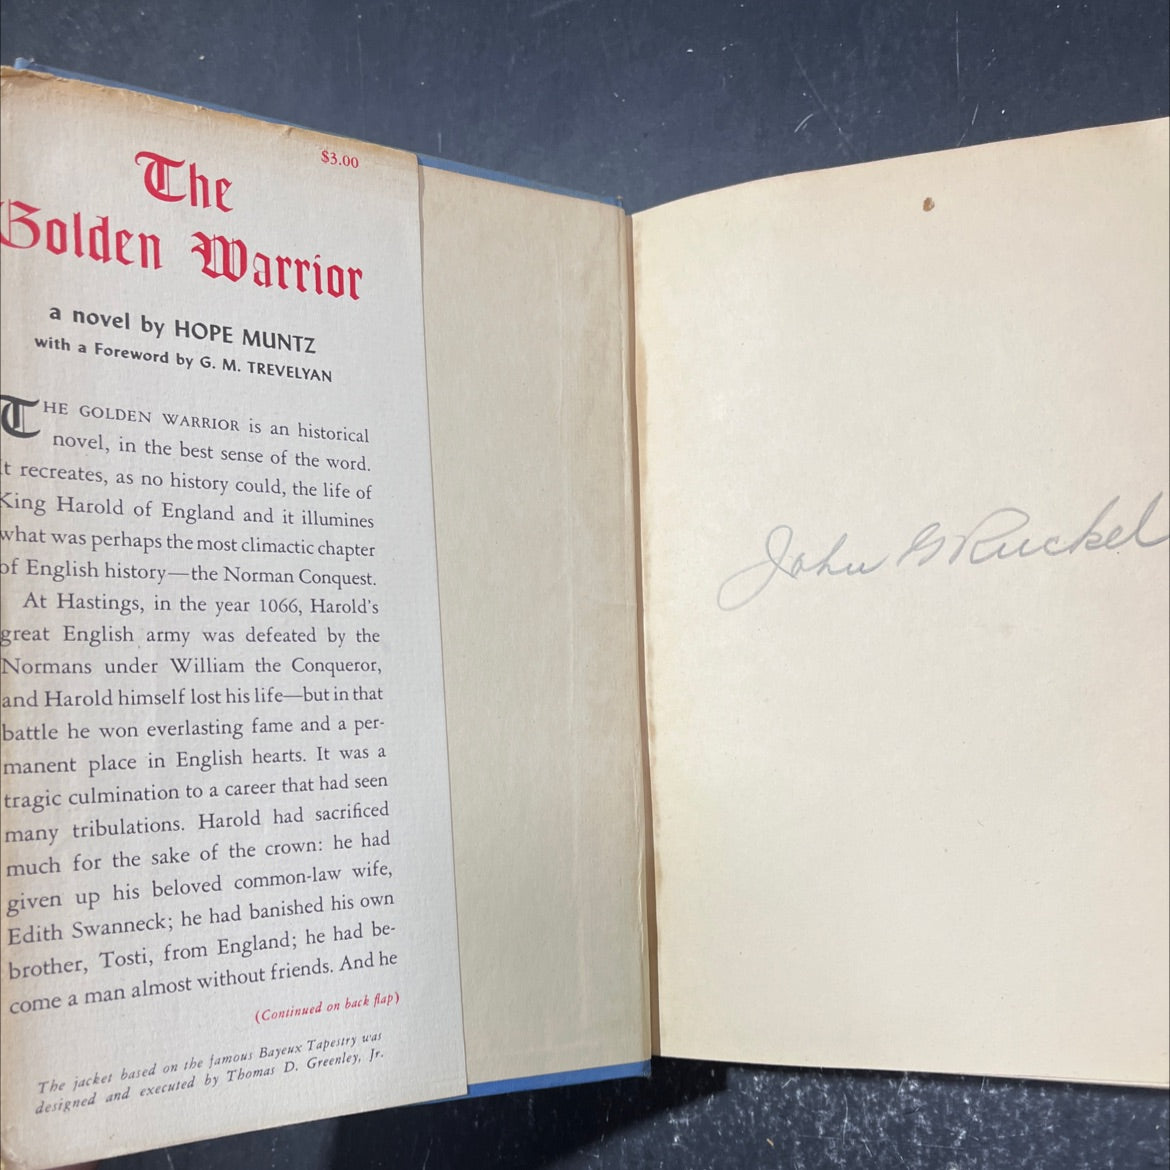 $3.00
The
Golden Warrior
a novel by HOPE MUNTZ
with a Foreword by G. M. TREVELYAN
THE GOLDEN WARRIOR is an historical
novel, in the best sense of the word.
It recreates, as no history could, the life of
King Harold of England and it illumines
what was perhaps the most climactic chapter
of English history—the Norman Conquest.
At Hastings, in the year 1066, Harold's
great English army was defeated by the
Normans under William the Conqueror,
and Harold himself lost his life—but in that
battle he won everlasting fame and a per-
manent place in English hearts. It was a
tragic culmination to a career that had seen
many tribulations. Harold had sacrificed
much for the sake of the crown: he had
given up his beloved common-law wife,
Edith Swanneck; he had banished his own
brother, Tosti, from England; he had be-
come a man almost without friends. And he
(Continued on back flap)
The jacket based on the famous Bayeux Tapestry was
designed and executed by Thomas D. Greenley, Jr.
John G Ruckel